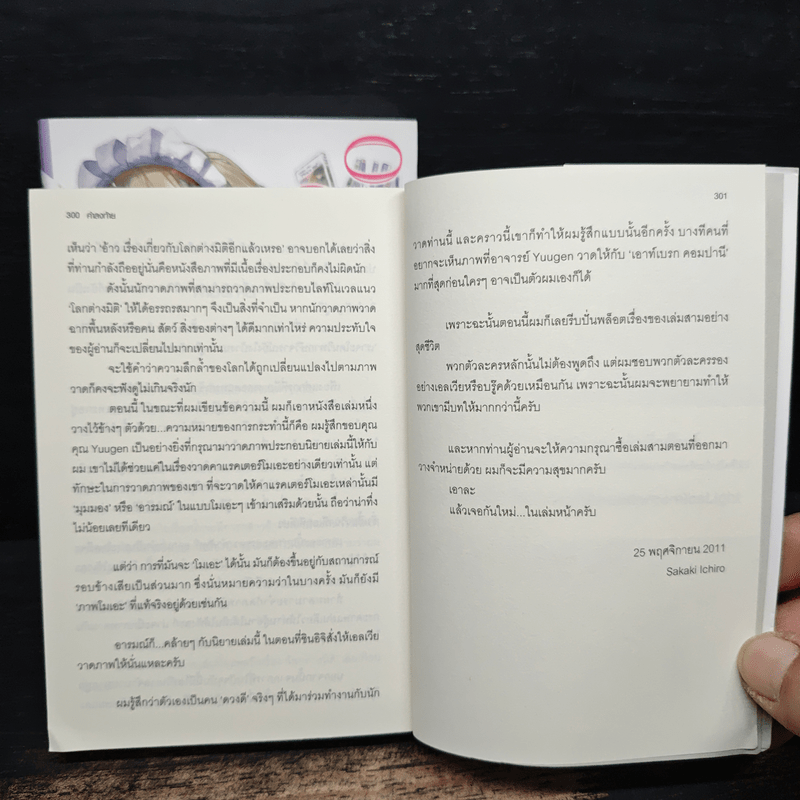 300 คำลงท้าย
เห็นว่า 'อ้าว เรื่องเกี่ยวกับโลกต่างมิติอีกแล้วเหรอ' อาจบอกได้เลยว่าสิ่ง
ที่ท่านกำลังถืออยู่นั่นคือหนังสือภาพที่มีเนื้อเรื่องประกอบก็คงไม่ผิดนัก
ดังนั้นนักวาดภาพที่สามารถวาดภาพประกอบไลท์โนเวลแนว
'โลกต่างมิติ' ให้ได้อรรถรสมากๆ จึงเป็นสิ่งที่จำเป็น หากนักวาดภาพวาด
ฉากพื้นหลังหรือคน สัตว์ สิ่งของต่างๆ ได้ดีมากเท่าไหร่ ความประทับใจ
ของผู้อ่านก็จะเปลี่ยนไปมากเท่านั้น
จะใช้คำว่าความลึกล้ำของโลกได้ถูกเปลี่ยนแปลงไปตามภาพ
วาดก็คงจะฟังดูไม่เกินจริงนัก
ตอนนี้ ในขณะที่ผมเขียนข้อความนี้ ผมก็เอาหนังสือเล่มหนึ่ง
วางไว้ข้างๆ ตัวด้วย...ความหมายของการกระทำนี้ก็คือ ผมรู้สึกขอบคุณ
คุณ Yuugen เป็นอย่างยิ่งที่กรุณามาวาดภาพประกอบนิยายเล่มนี้ให้กับ
ผม เขาไม่ได้ช่วยแค่ในเรื่องวาดคาแรคเตอร์โมเอะอย่างเดียวเท่านั้น แต่
ทักษะในการวาดภาพของเขา ที่จะวาดให้คาแรคเตอร์โมเอะเหล่านั้นมี
'มุมมอง' หรือ 'อารมณ์' ในแบบโมเอะๆ เข้ามาเสริมด้วยนั้น ถือว่าน่าทึ่ง
ไม่น้อยเลยทีเดียว
แต่ว่า การที่มันจะ 'โมเอะ' ได้นั้น มันก็ต้องขึ้นอยู่กับสถานการณ์
รอบข้างเสียเป็นส่วนมาก ซึ่งนั่นหมายความว่าในบางครั้ง มันก็ยังมี
'ภาพโมเอะ' ที่แท้จริงอยู่ด้วยเช่นกัน
อารมณ์ก็...คล้ายๆ กับนิยายเล่มนี้ ในตอนที่ชินอิจิสั่งให้เอลเวีย
วาดภาพให้นั่นแหละครับ
ผมรู้สึกว่าตัวเองเป็นคน 'ดวงดี' จริงๆ ที่ได้มาร่วมทำงานกับนัก
301
วาดท่านนี้ และคราวนี้เขาก็ทำให้ผมรู้สึกแบบนั้นอีกครั้ง บางทีคนที่
อยากจะเห็นภาพที่อาจารย์ Yuugen วาดให้กับ 'เอาท์เบรก คอมปานี'
มากที่สุดก่อนใครๆ อาจเป็นตัวผมเองก็ได้
เพราะฉะนั้นตอนนี้ผมก็เลยรีบปั่นพล็อตเรื่องของเล่มสามอย่าง
สุดชีวิต
พวกตัวละครหลักนั้นไม่ต้องพูดถึง แต่ผมชอบพวกตัวละครรอง
อย่างเอลเวียหรือบรู๊คด้วยเหมือนกัน เพราะฉะนั้นผมจะพยายามทำให้
พวกเขามีบทให้มากกว่านี้ครับ
และหากท่านผู้อ่านจะให้ความกรุณาซื้อเล่มสามตอนที่ออกมา
วางจำหน่ายด้วย ผมก็จะมีความสุขมากครับ
เอาละ
แล้วเจอกันใหม่...ในเล่มหน้าครับ
25 พฤศจิกายน 2011
Sakaki Ichiro